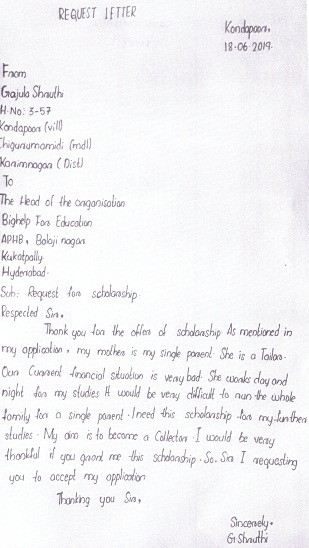 REQUEST LETTER
Kondapoor,
18.06.2019.
From
Gajula Shruthi
H.No: 3-57
Kondapoor (vill)
Chigurumamidi (mdl)
Karimnagar (Dist)
To
The Head of the organisation
Bighelp For Education
APHB, Balaji nagar
Kukatpally.
Hyderabad.
Sub: Request for scholarship.
Respected Sir,
Thank you for the offer of scholarship As mentioned in
my application, my mother is my single parent. She is a Tailor.
Our Current financial situation is very bad. She works day and
night for my studies It would be very difficult to run the whole
family for a single parent. I need this scholarship for my further
studies. My aim is to become a Collector. I would be very
thankful if you grant me this scholarship. So, Sir I requesting
you to accept my application
Thanking you Sir,
Sincerely.
G Shruthi